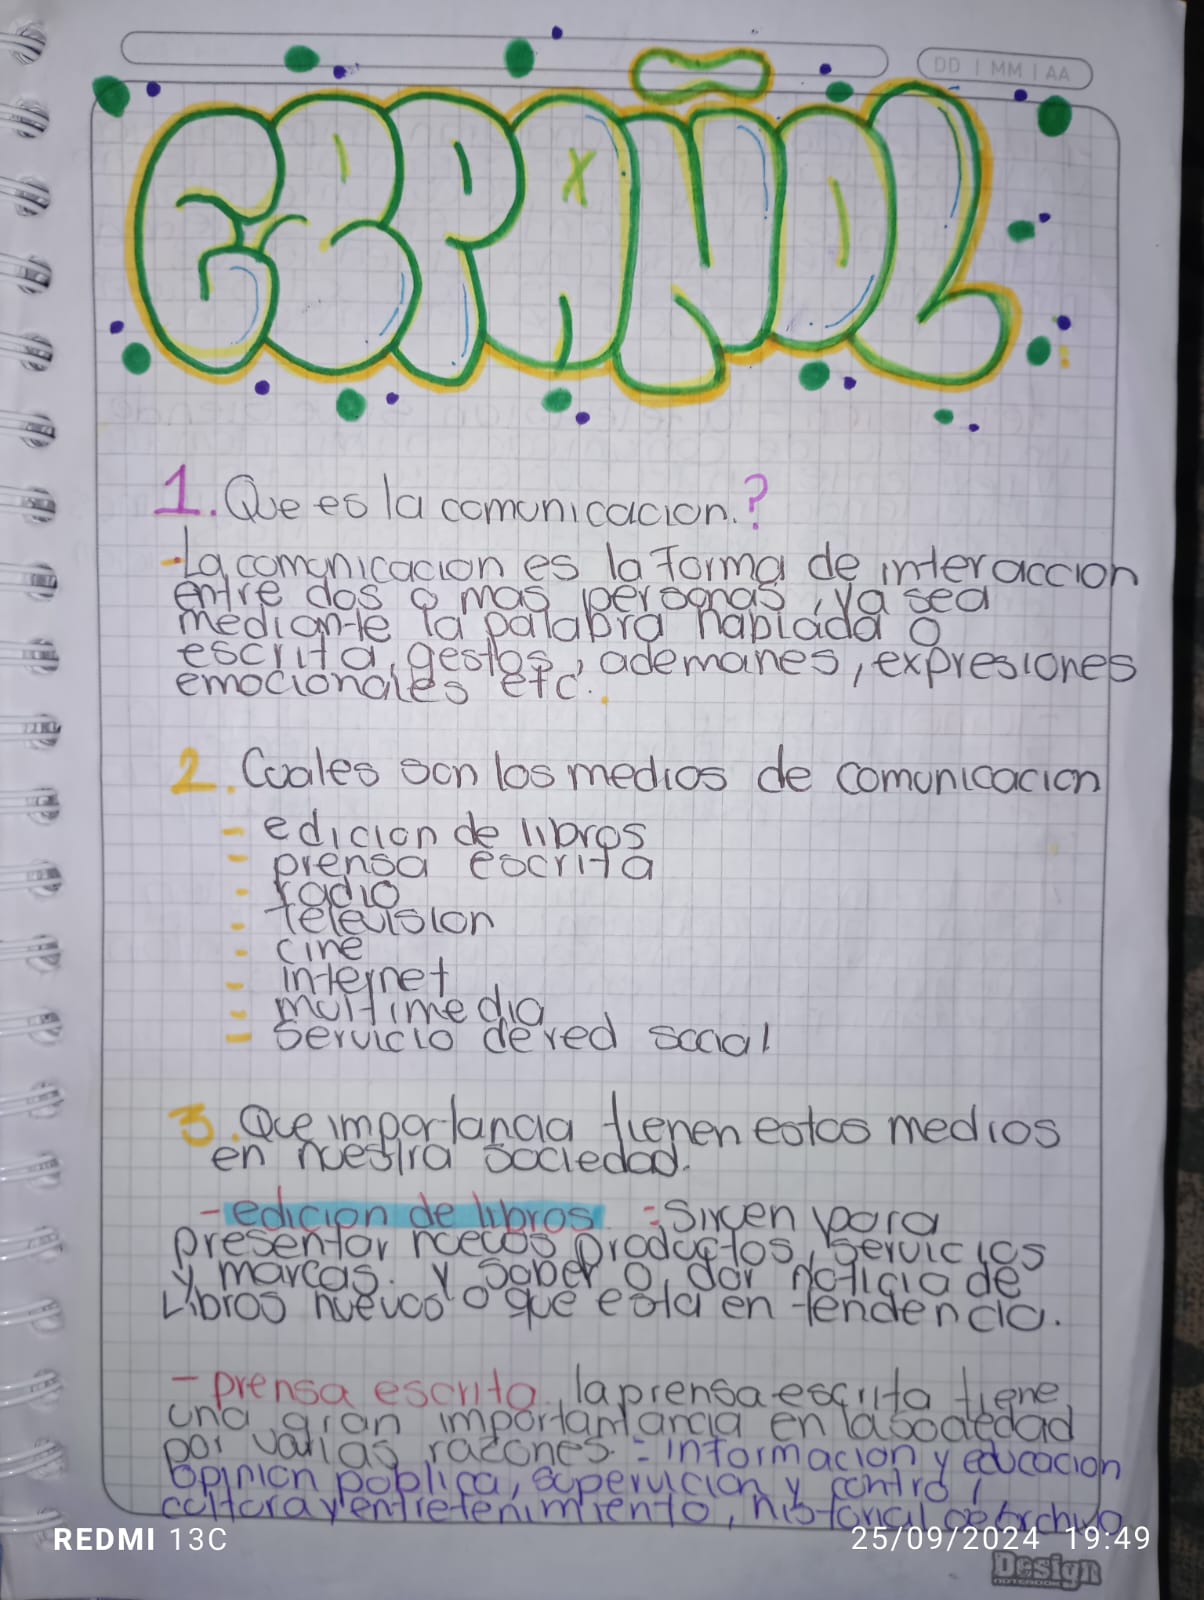 DD | MM | AA
ESPAÑOL
1. Que es la comunicacion.?
-La comunicacion es la forma de interaccion
entre dos o mas personas, ya sea
mediante la palabra hablada o
escrita, gestos, ademanes, expresiones
emocionales etc.
2. Cuales son los medios de comunicacion
- edicion de libros
- prensa escrita
- radio
- television
- cine
- internet
- multimedia
- servicio de red social
3. Que importancia tienen estos medios
en nuestra sociedad.
- edicion de libros = Sirven para
presentar nuevos productos, servicios
y marcas. y saber o dar noticia de
Libros nuevos o que esta en tendencia.
- prensa escrita la prensa escrita tiene
una gran importantancia en la sociedad
por varias razones. = informacion y educacion
opinion publica, supervicion y contro,
cultura y entretenimiento, historial de archivo
REDMI 13C
25/09/2024 19:49
Design
NOTEBOOK